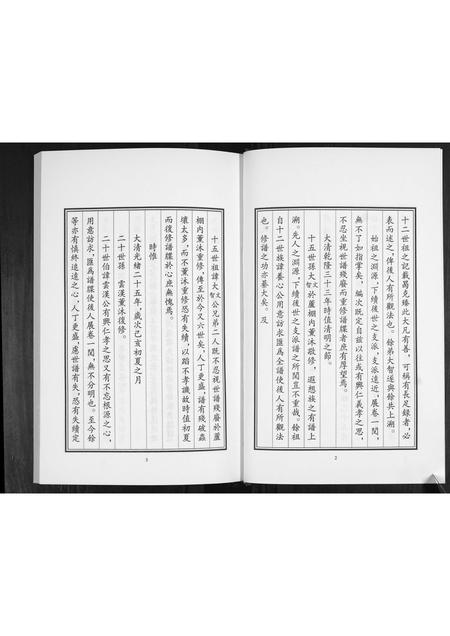 十二世祖之記載曷克臻此大凡有善，可稱有長足錄者，必
表而述之，俾後人有所觀法也。餘弟大智遂與餘共上溯。
始祖之淵源，下續後世之支派，支派遠近，展卷一閱，
無不了如指掌矣，編次既定自茲以往或有興仁義孝之思，
不忍坐視世譜殘廢而重修譜牒者庶有厚望焉。
大清乾隆三十三年時值清明之節。
十五世孫大文智於蘆棚內薰沐敬修，遐想族之有譜上
溯。先人之淵源，下續後世之支派譜之所關豈不重哉。餘祖
自十二世族諱養心公用意訪求匯為全譜使後人有所觀法
也。修譜之功亦綦大矣。及
2
十五世祖諱大文智公兄弟二人既不忍視世譜殘廢於蘆
棚內薰沐重修，傳至於今又六世矣，人丁更盛，譜有殘破蟲
壞太多，而不薰沐重修恐有失續，以蹈不孝譏故時值初夏
而復修譜牒於心庶無愧焉。
時惟
大清光緒二十五年，歲次己亥初夏之月
二十世孫 雲漢薰沐復修。
二十世伯諱雲漢公有興仁孝之思又有不忘根源之心，
用意訪求，匯為譜牒使後人展卷一閱，無不分明也。至今餘
等亦有慎終追遠之心，人丁更盛，慮世譜有失，恐有失續定
3